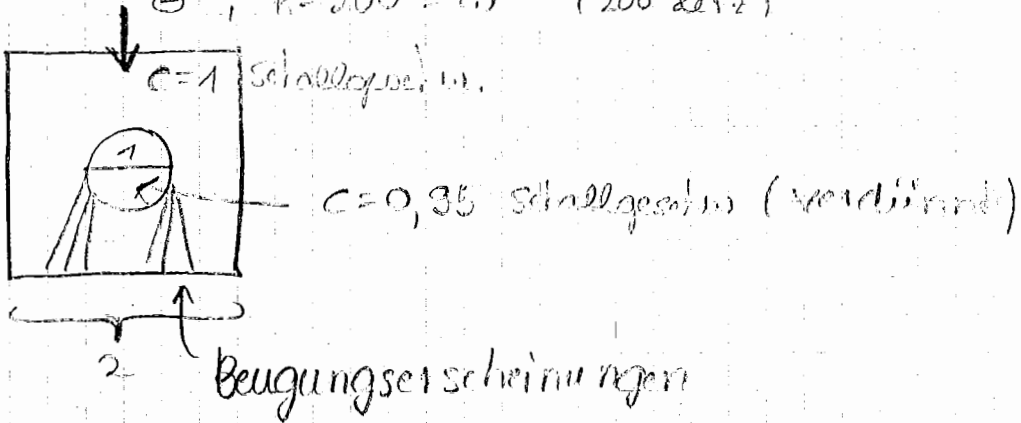 c=1 Schallgeschw.
1
c=0,95 Schallgeschw (verdünnt)
2
Beugungserscheinungen